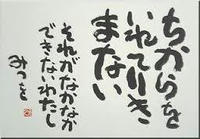 ちからを
いれてりき
まない
それがなかなか
できないわたし
みつを